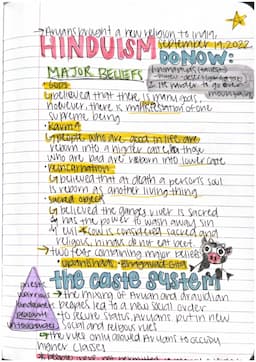 → Aryans brought a new religion to India
HINDUISM
September 19, 2022
DO NOW:
MAJOR BELIEFS
gods
↳ believed that there is many gods,
however, there is manifestation of one
supreme being
karma
↳ people who are good in life are
reborn into a higher caste, those
who are bad are reborn into lower caste
reincarnation
↳ believed that at death a person's soul
is reborn as another living thing
sacred objects
↳ believed the ganges river is sacred
↳ has the power to wash away sin
↳ cow is considered sacred and
religious, hindus do not eat beef
→ two texts containing major beliefs
upanishads, bhagavad gita
the caste system
priests
warriors
peasants
untouchables
→ the mixing of Aryan and dravidian
peoples led to a new social order
→ to secure status, Aryans put in new
social and religious rules
→ the rules only allowed Aryans to occupy
higher classes